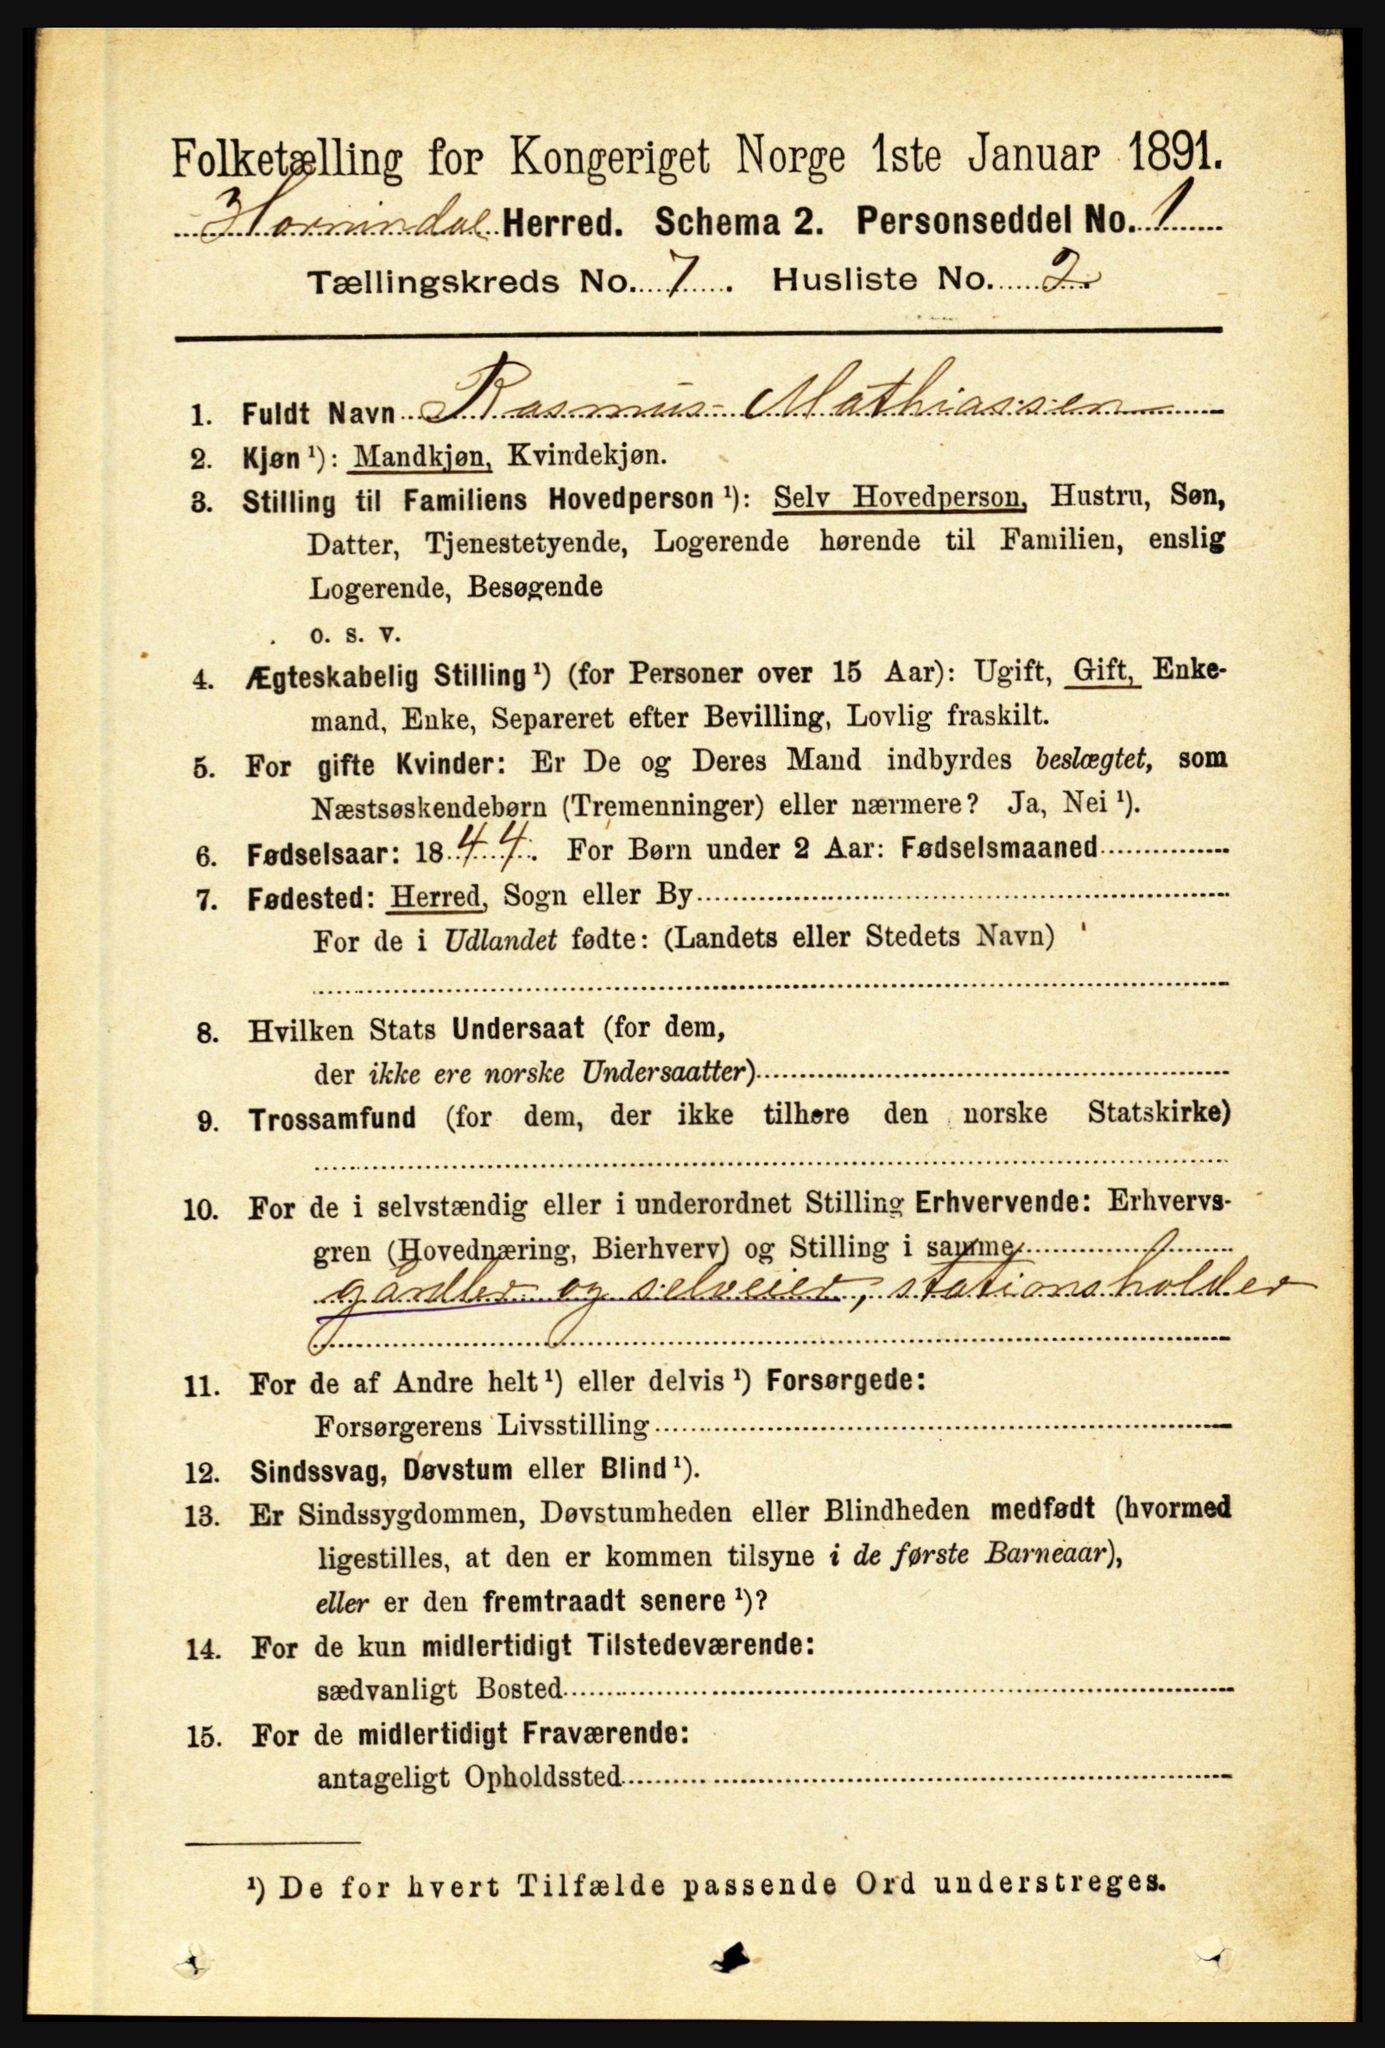 Folketælling for Kongeriget Norge 1ste Januar 1891.
Hornindal Herred. Schema 2. Personseddel No. 1
Tællingskreds No. 7. Husliste No. 2
1. Fuldt Navn Rasmus Mathiassen
2. Kjøn¹): Mandkjøn, Kvindekjøn.
3. Stilling til Familiens Hovedperson¹): Selv Hovedperson, Hustru, Søn,
Datter, Tjenestetyende, Logerende hørende til Familien, enslig
Logerende, Besøgende
o. s. v.
4. Ægteskabelig Stilling¹) (for Personer over 15 Aar): Ugift, Gift, Enke-
mand, Enke, Separeret efter Bevilling, Lovlig fraskilt.
5. For gifte Kvinder: Er De og Deres Mand indbyrdes beslægtet, som
Næstsøskendebørn (Tremenninger) eller nærmere? Ja, Nei¹).
6. Fødselsaar: 1844. For Børn under 2 Aar: Fødselsmaaned
7. Fødested: Herred, Sogn eller By
For de i Udlandet fødte: (Landets eller Stedets Navn)
8. Hvilken Stats Undersaat (for dem,
der ikke ere norske Undersaatter)
9. Trossamfund (for dem, der ikke tilhøre den norske Statskirke)
10. For de i selvstændig eller i underordnet Stilling Erhvervende: Erhvervs-
gren (Hovednæring, Bierhverv) og Stilling i samme
gardbr og selveier, stationsholder
11. For de af Andre helt¹) eller delvis¹) Forsørgede:
Forsørgerens Livsstilling
12. Sindssvag, Døvstum eller Blind¹).
13. Er Sindssygdommen, Døvstumheden eller Blindheden medfødt (hvormed
ligestilles, at den er kommen tilsyne i de første Barneaar),
eller er den fremtraadt senere¹)?
14. For de kun midlertidigt Tilstedeværende:
sædvanligt Bosted
15. For de midlertidigt Fraværende:
antageligt Opholdssted
¹) De for hvert Tilfælde passende Ord understreges.